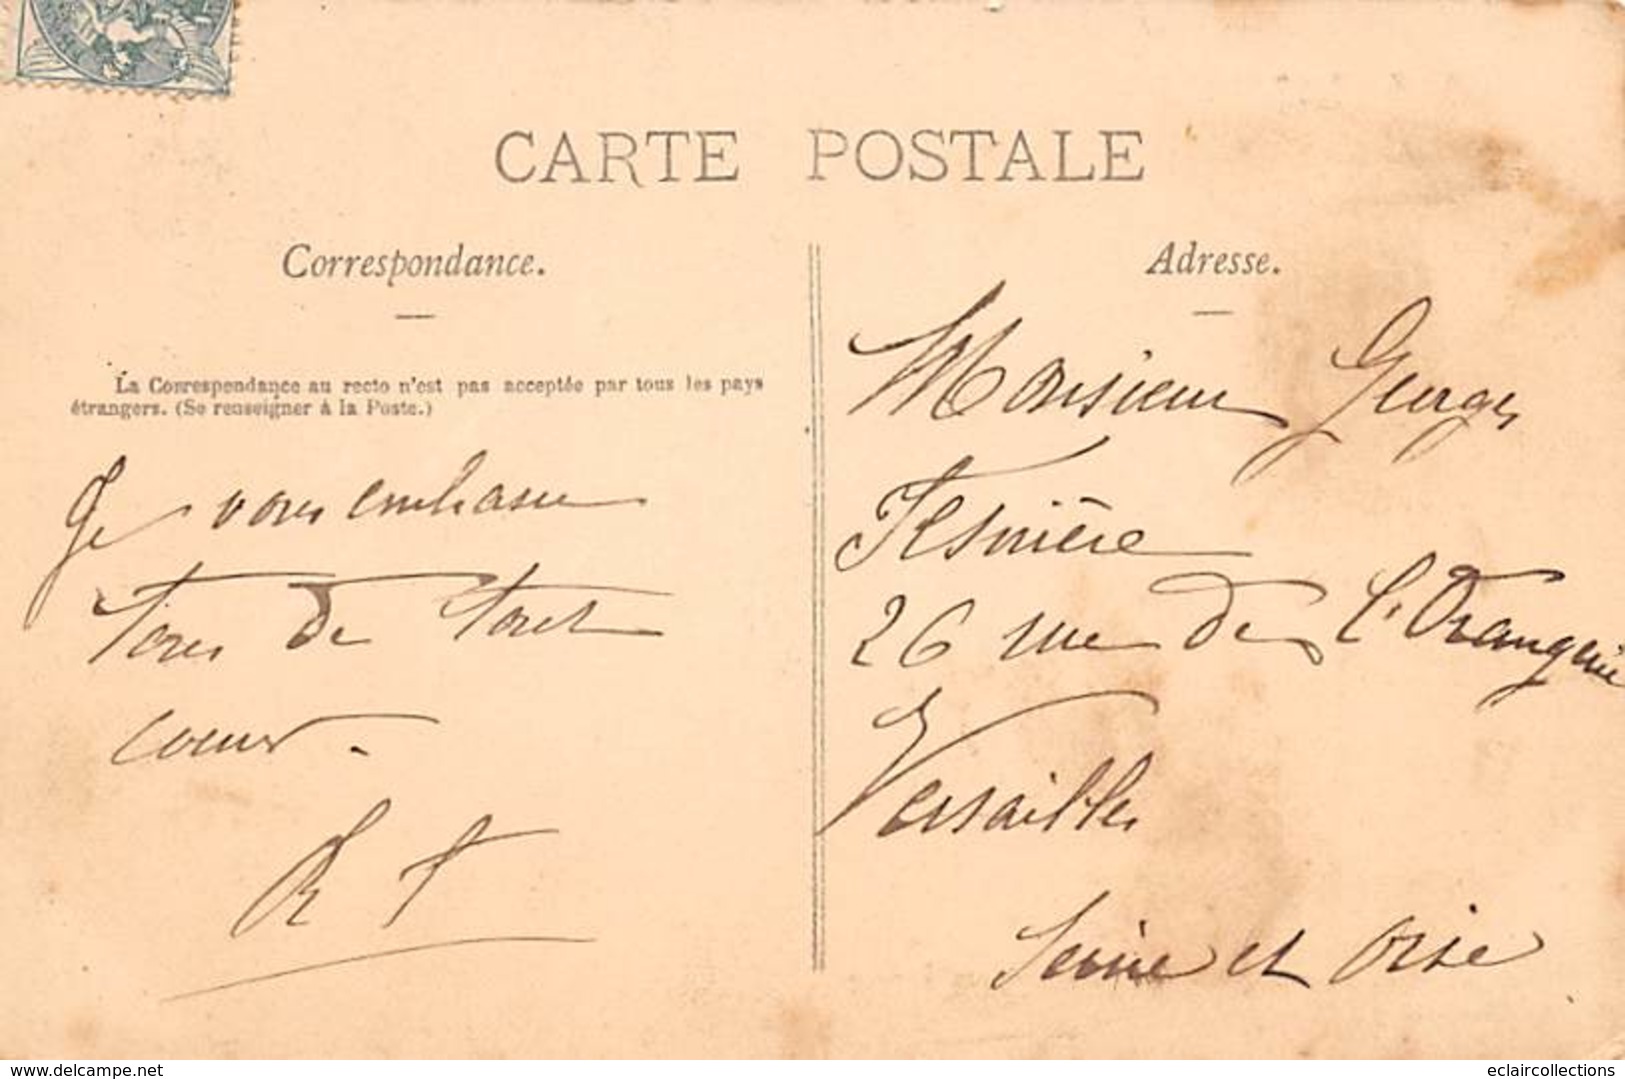 CARTE POSTALE
Correspondance.
La Correspondance au recto n'est pas acceptée par tous les pays
étrangers. (Se renseigner à la Poste.)
Je vous embrasse
tous de tout
coeur.
R T
Adresse.
Monsieur Georges
26 rue de l'Orangerie
Versailles
Seine et Oise
www.delcampe.net
eclaircollections